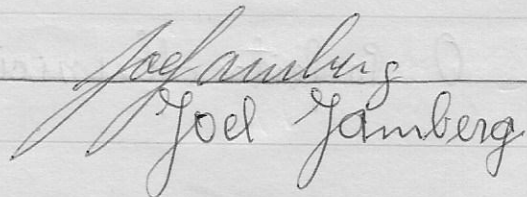 Joel Jamberg
Joel Jamberg